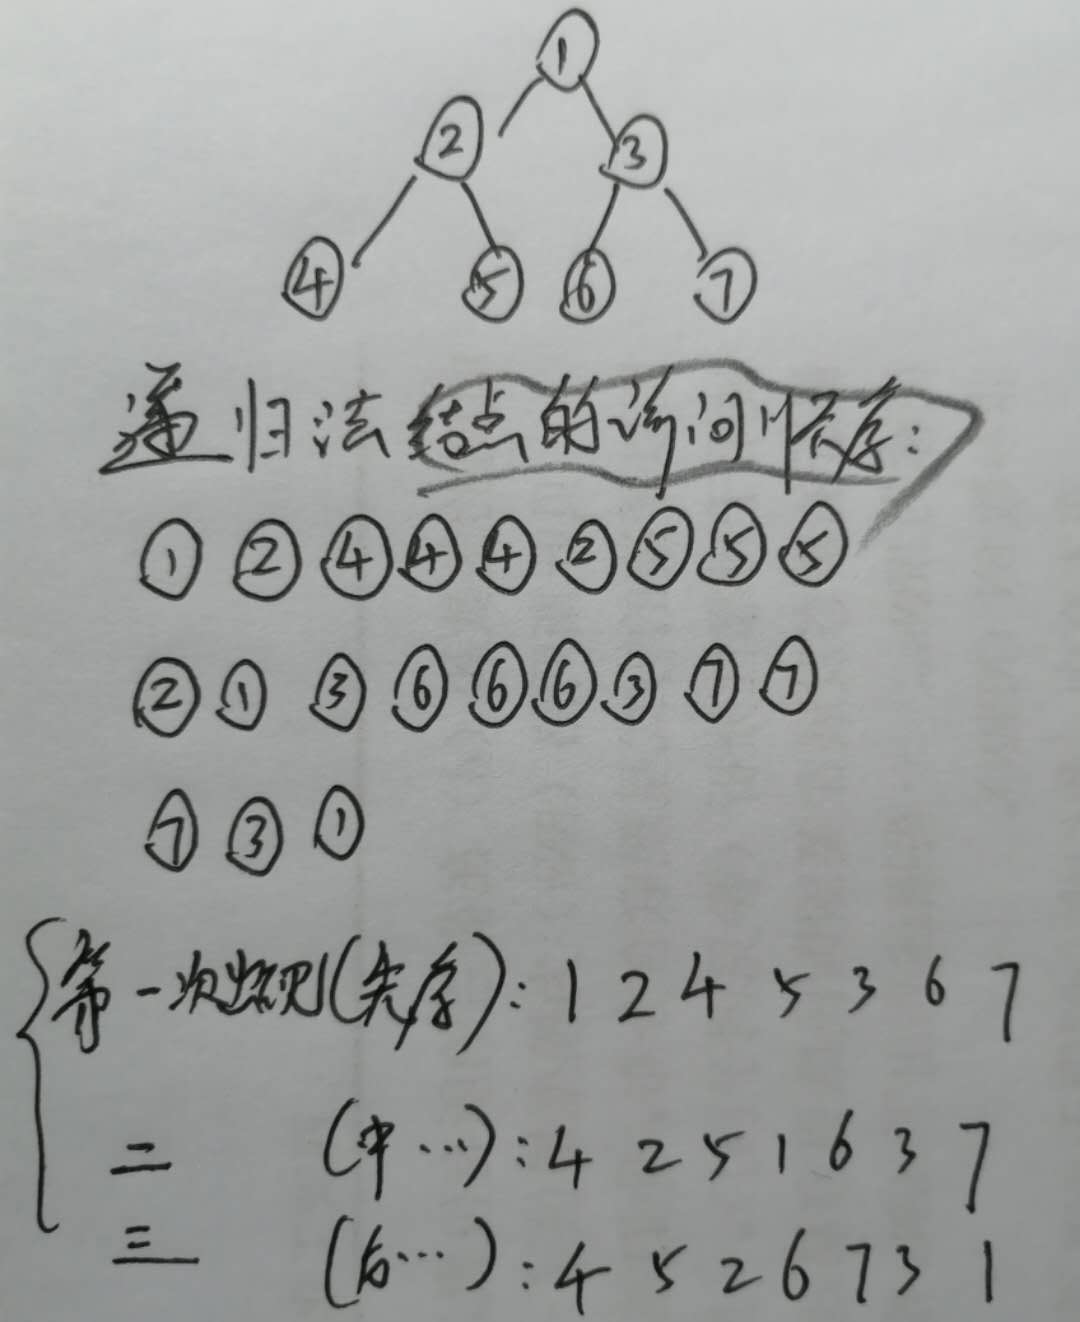 ①
② ③
④ ⑤ ⑥ ⑦
递归法结点的访问顺序:
① ② ④ ④ ④ ② ⑤ ⑤ ⑤
② ① ③ ⑥ ⑥ ⑥ ③ ⑦ ⑦
⑦ ③ ①
第一次出现(先序): 1 2 4 5 3 6 7
二 (中…): 4 2 5 1 6 3 7
三 (后…): 4 5 2 6 7 3 1